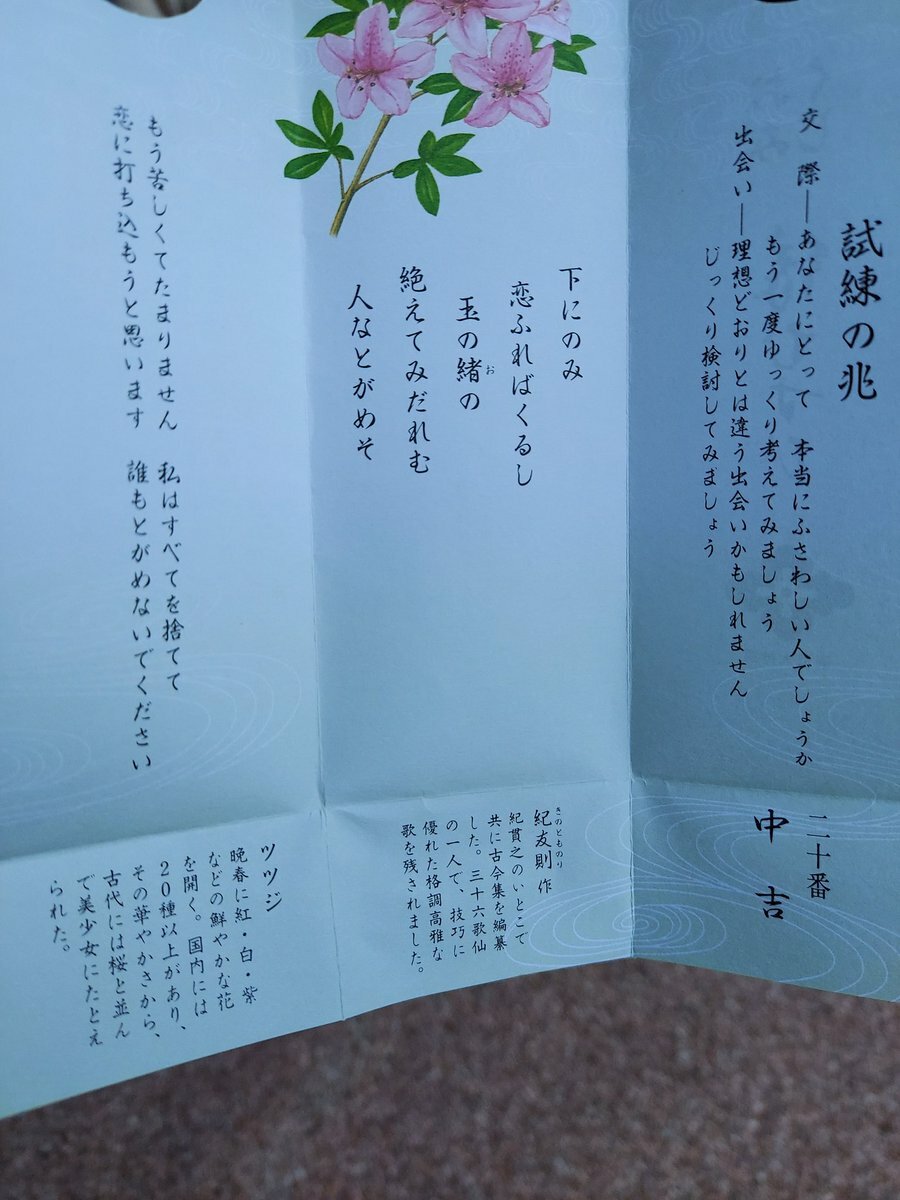 試練の兆
交　際―あなたにとって　本当にふさわしい人でしょうか
もう一度ゆっくり考えてみましょう
出会い―理想どおりとは違う出会いかもしれません
じっくり検討してみましょう
二十番
中吉
下にのみ
恋ふればくるし
玉の緒の
お
絶えてみだれむ
人なとがめそ
きのとものり
紀友則 作
紀貫之のいとこで
共に古今集を編纂
した。三十六歌仙
の一人で、技巧に
優れた格調高雅な
歌を残されました。
もう苦しくてたまりません　私はすべてを捨てて
恋に打ち込もうと思います　誰もとがめないでください
ツツジ
晩春に紅・白・紫
などの鮮やかな花
を開く。国内には
20種以上があり、
その華やかさから、
古代には桜と並ん
で美少女にたとえ
られた。